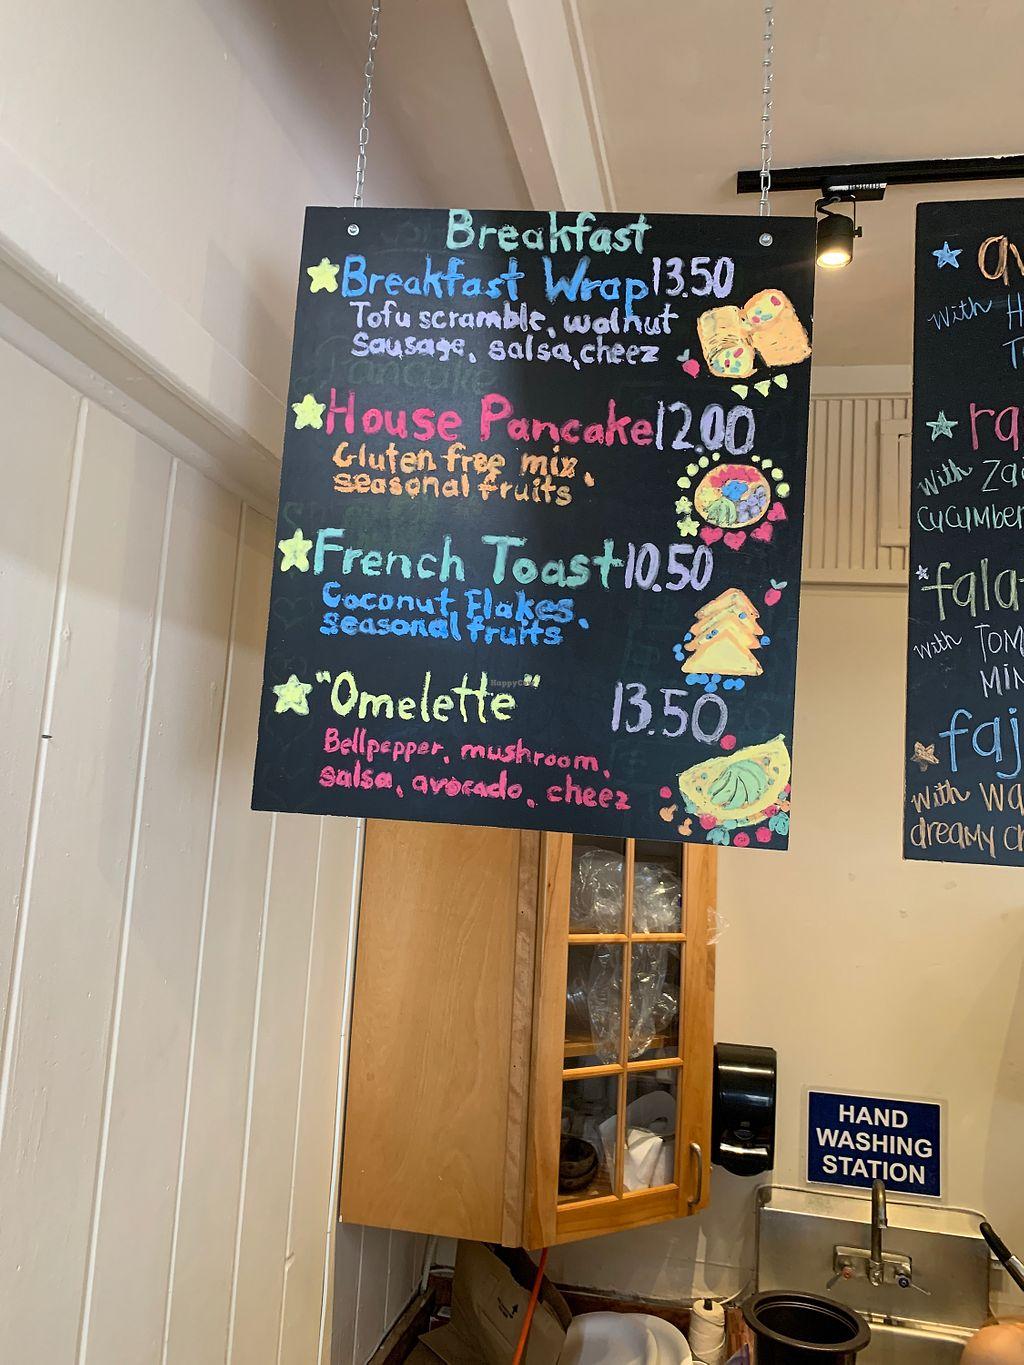 Breakfast
Breakfast Wrap 13.50
Tofu scramble, walnut
Sausage, salsa, cheez
Pancake
House Pancake 12.00
Gluten free mix,
seasonal fruits
French Toast 10.50
Coconut Flakes,
seasonal fruits
"Omelette" 13.50
HappyCow
Bellpepper, mushroom,
salsa, avocado, cheez
With
With
cucumber
With
With
dreamy
HAND
WASHING
STATION